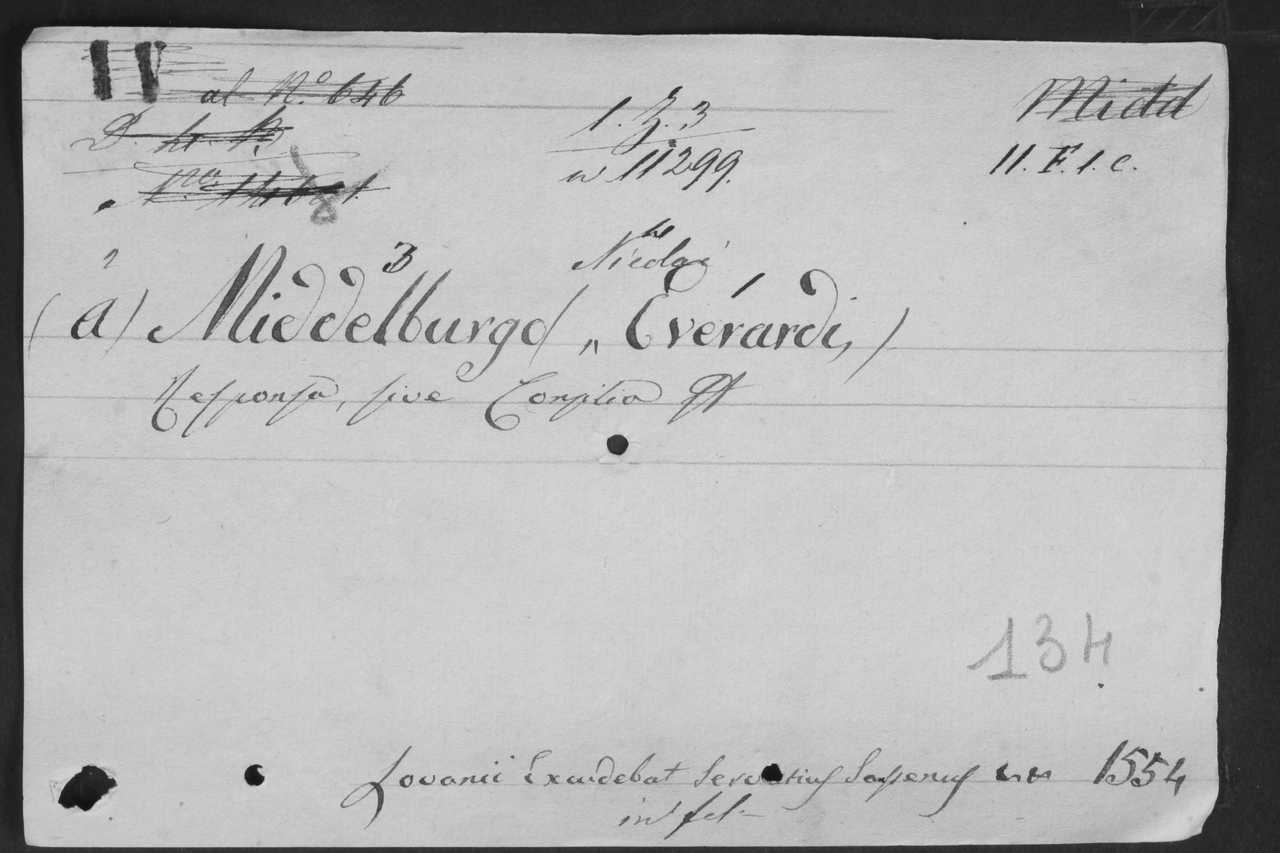 IV
al N.º 646
1. Z. 3
Midd
D. 4. R.
11. F. 1. c.
w 11299.
N.ro
2
3
4
Nicolai
1
(a) Middelburgo, „ Everardi,)
Responsa, sive Consilia
134
Lovanii Excudebat Servatius Sassenus 1554
in fol-